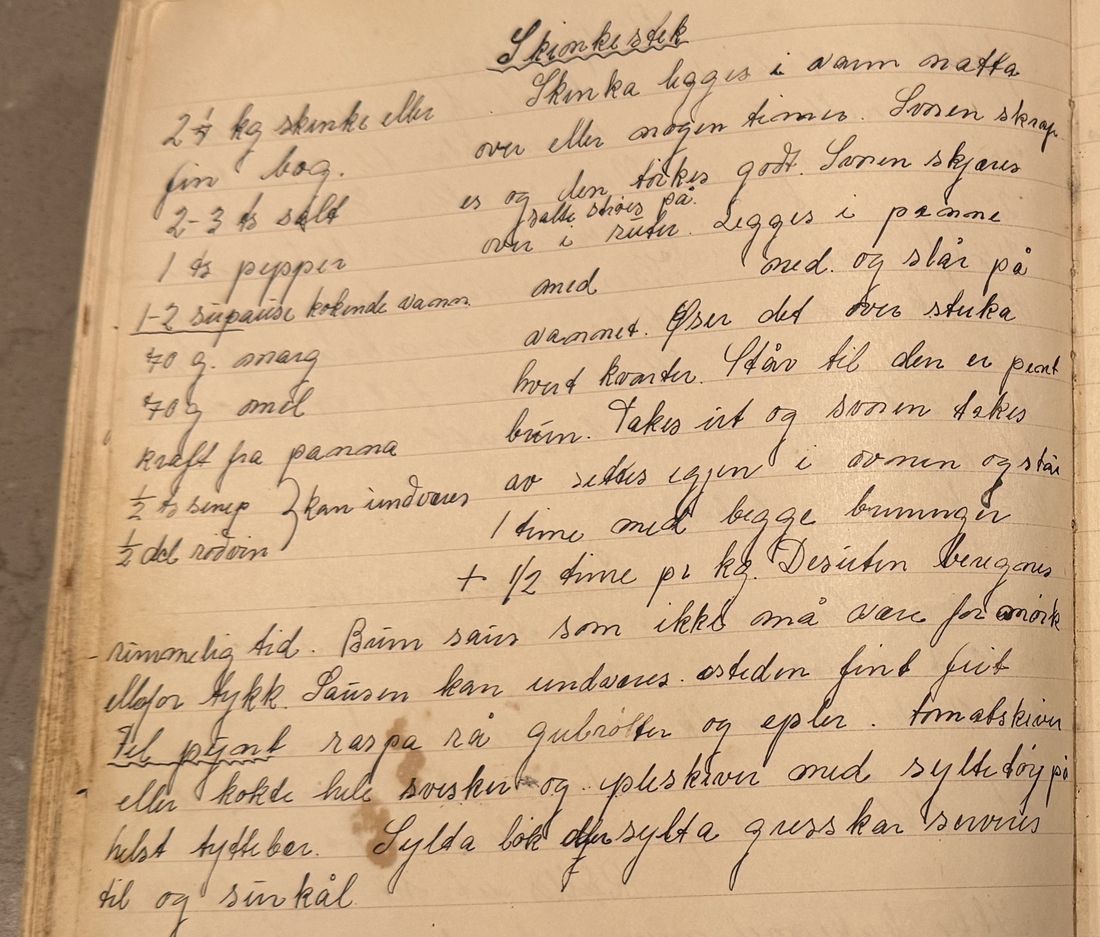 Skinkestek
2 1/4 kg skinke eller
fin bog.
2-3 ts salt
1 ts pepper
1-2 supause kokende vann
70 g. marg
70 g mel
kraft fra panna
1/2 ts senep } kan undværes
1/2 del rødvin
Skinka legges i vann natta
over eller nogen timer. Svoren skrap
es og den tørkes godt. Svoren skjæres
salte strøes på.
over i ruter. Legges i panne
med ned. og slår på
vannet. Øser det over steka
hvert kvarter. Står til den er pent
brun. Takes ut og svoren takes
av settes igjen i ovnen og står
1 time med begge bruninger
+ 1/2 time pr kg. Desuten beregnes
rimmelig tid. Brun saus som ikke må være for mørk
ellefor tykk. Sausen kan undværes. isteden fint fett
Til pynt raspa rå gulrøtter og epler. tomatskiver
eller kokte hele svisker og epleskiver med syltetøy på
helst tyttebær. Sylta løk eller sylta gresskar serveres
til og surkål